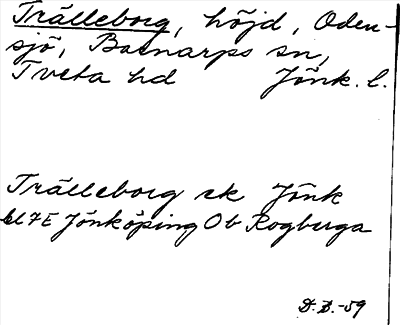 Trälleborg, höjd, Oden-
sjö, Barnarps sn,
Tveta hd Jönk. l.
Trälleborg ek Jönk
bl 7E Jönköping Ob Rogberga
D. D. -59